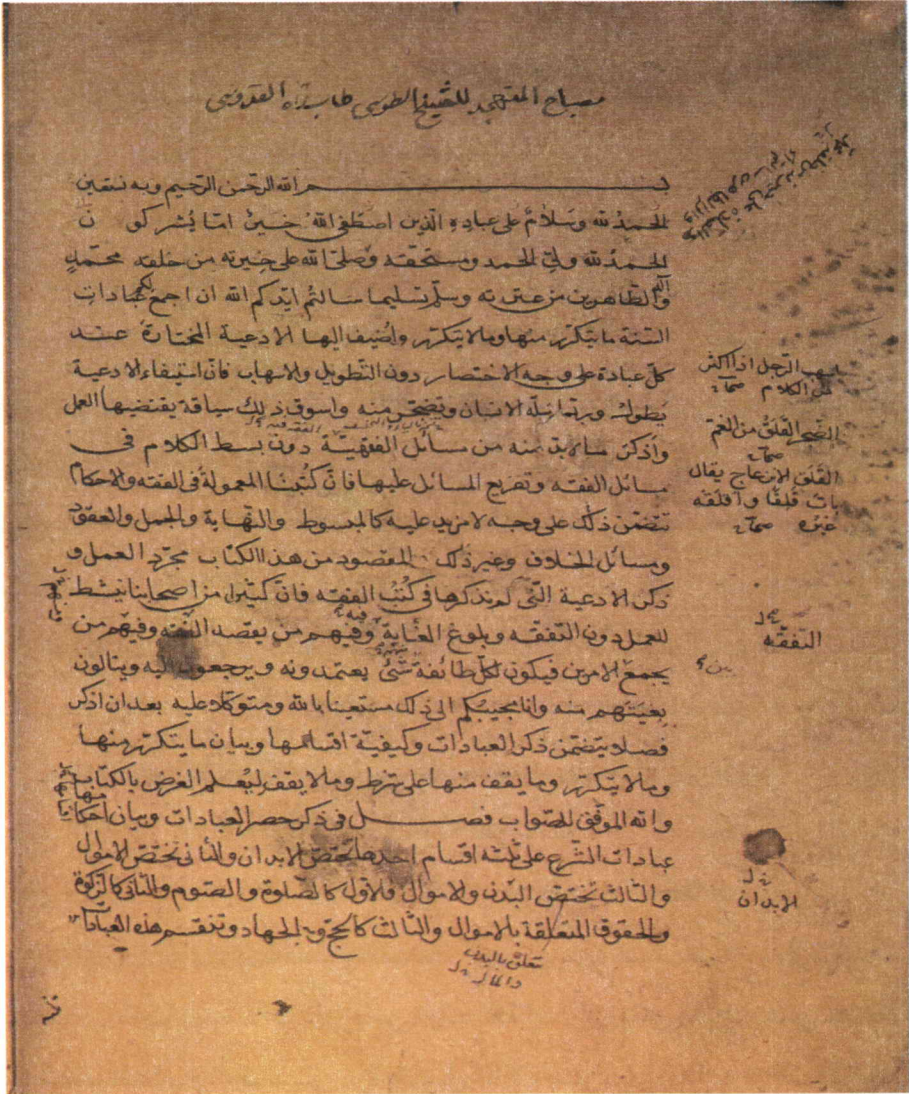 مصباح المتهجد للشيخ الطوسي طاب ثراه القدوسي
بسم الله الرحمن الرحيم وبه نستعين
الحمد لله وسلام على عباده الذين اصطفى الله خير اما يشركون
الحمد لله ولي الحمد ومستحقه وصلى الله على خيرته من خلقه محمد
وآله الطاهرين من عترته وسلم تسليما سالتم ايدكم الله ان اجمع لكم عبادات
السنة ما يتكرر منها وما لا يتكرر واضيف اليها الادعية المختارة عند
كل عبادة على وجه الاختصار دون التطويل والاسهاب فان استيفاء الادعية
يطول وربما مله الانسان وتضجر منه واسوق ذلك سياقة يقتضيها العمل
واذكر ما لا بد منه من مسائل الفقهية دون بسط الكلام في
مسائل الفقه وتفريع المسائل عليها فان كتبنا المعمولة في الفقه والاحكام
تتضمن ذلك على وجه لا مزيد عليه كالمبسوط والنهاية والجمل والعقود
ومسائل الخلاف وغير ذلك المقصود من هذا الكتاب مجرد العمل و
ذكر الادعية التي لم نذكرها في كتب الفقه فان كثيرا من اصحابنا ينشط
للعمل دون التفقه وبلوغ الغاية فيه وفيهم من يقصد التفقه وفيهم من
يجمع الامرين فيكون لكل طائفة شئ يعتمدونه ويرجعون اليه وينالون
بغيتهم منه وانا مجيبكم الى ذلك مستعينا بالله ومتوكلا عليه بعد ان اذكر
فصلا يتضمن ذكر العبادات وكيفية اقسامها وبيان ما يتكرر منها
وما لا يتكرر وما يقف منها على شرط وما لا يقف ليعلم الغرض بالكتاب
والله الموفق للصواب فصل في ذكر حصر العبادات وبيان احكا
مها
عبادات الشرع على ثلثة اقسام احدها تختص الابدان والثانى تختص الاموال
والثالث تختص البدن والاموال فالاول كالصلوة والصوم والثانى كالزكوة
والحقوق المتعلقة بالاموال والثالث كالحج والجهاد وتنقسم هذه العبادات
يتعلق بالبدن
والمال
اسهب الرجل اذا اكثر
من الكلام صحاح
الضجر القلق من الغم
صحاح
القلق الانزعاج يقال
بات قلقا واقلقه
غيره صحاح
التفقه
الابدان